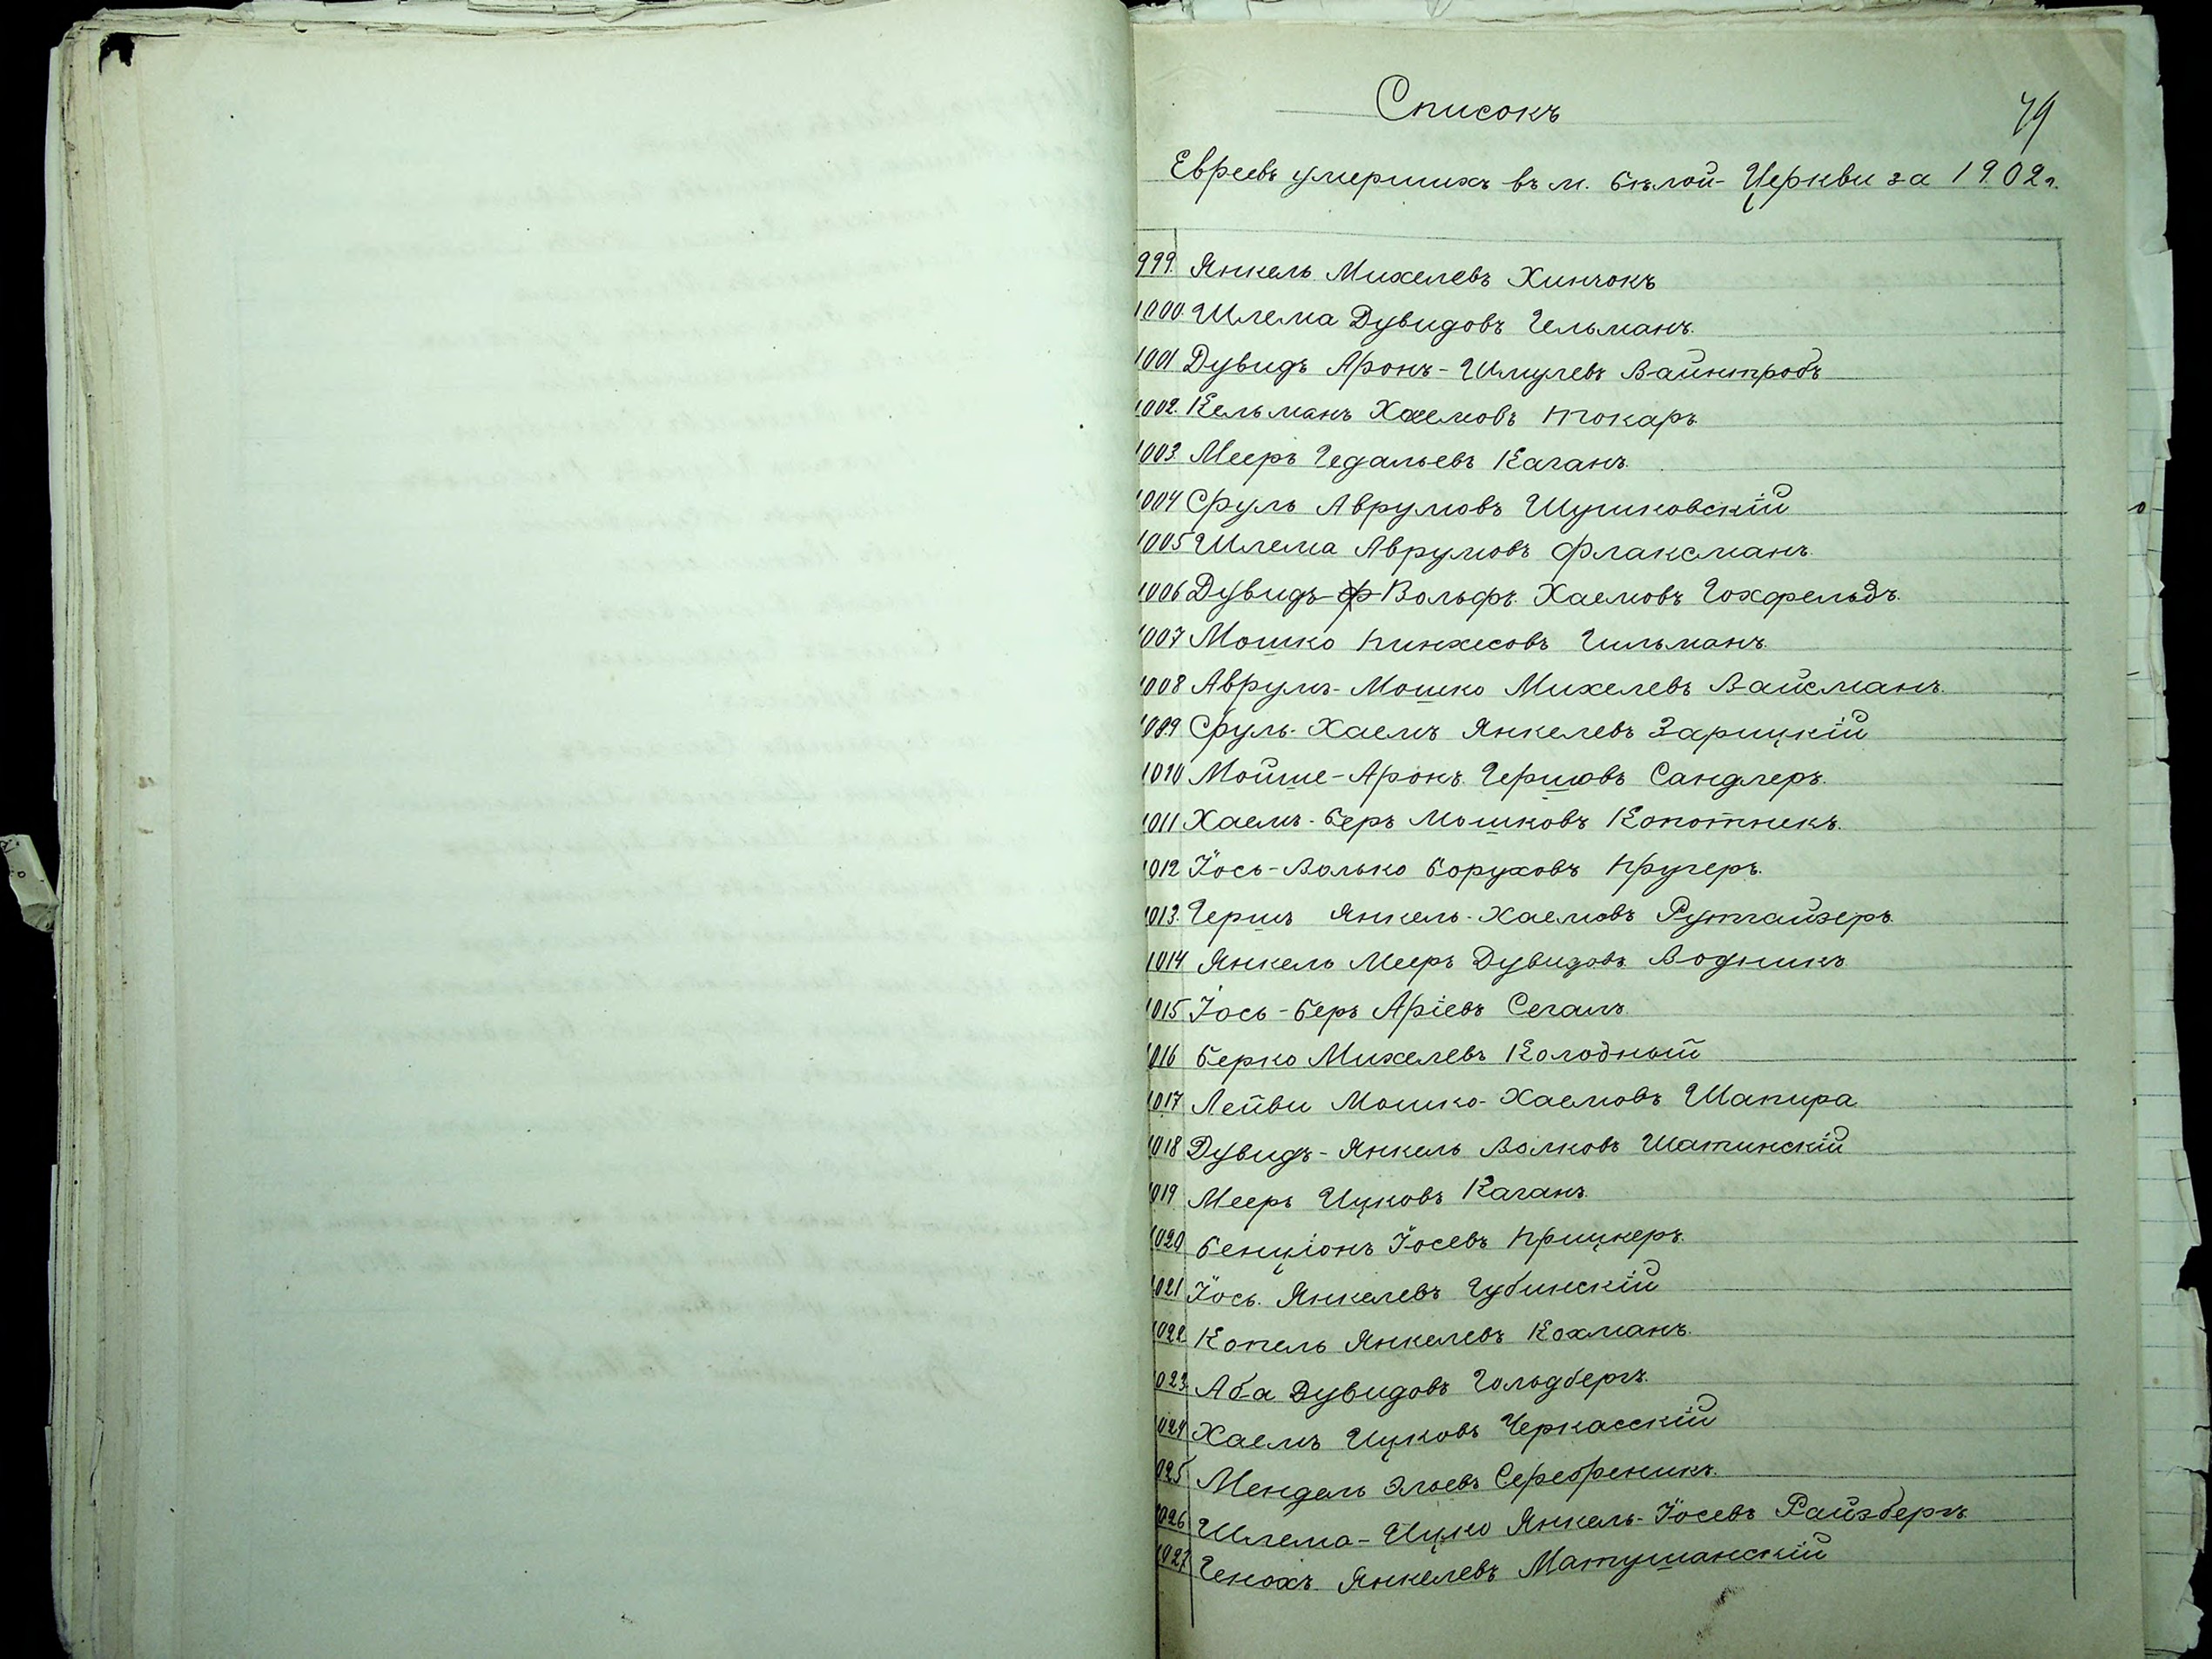 Списокъ
79
Евреевъ умершихъ въ м. Бѣлой-Церкви за 1902 г.
999. Янкель Михелевъ Хинчокъ
1000. Шлема Дувидовъ Гельманъ.
1001 Дувидъ Аронъ-Шмулевъ Вайнтробъ
1002. Кельманъ Хаемовъ Токаръ
1003. Мееръ Гедальевъ Каганъ.
1004 Сруль Аврумовъ Шушковскій
1005 Шлема Аврумовъ Флаксманъ.
1006 Дувидъ-Вольфъ Хаемовъ Гохфельдъ.
1007 Мошко Пинхесовъ Гильманъ.
1008 Аврумъ-Мошко Михелевъ Вайсманъ.
1009 Сруль-Хаемъ Янкелевъ Зарицкій
1010 Мойше-Аронъ Гершовъ Сандлеръ.
1011 Хаемъ-Беръ Мошковъ Копотникъ.
1012 Іось-Волько Боруховъ Пругеръ.
1013. Гершъ Янкель-Хаемовъ Рутгайзеръ
1014 Янкель Мееръ Дувидовъ Водникъ
1015 Іось-Беръ Аріевъ Сегалъ.
1016 Берко Михелевъ Колодный
1017 Лейви Мошко-Хаемовъ Шапира
1018 Дувидъ-Янкель Волковъ Шатинскій
1019 Мееръ Ицковъ Каганъ
1020 Бенціонъ Іосевъ Прицкеръ.
1021 Іось Янкелевъ Губинскій
1022 Копель Янкелевъ Кохманъ.
1023 Аба Дувидовъ Гольдбергъ.
1024 Хаемъ Ицковъ Черкасскій
1025 Мендель Эльевъ Серебреникъ.
1026 Шлема-Ицко Янкель-Іосевъ Райзбергъ
1027 Генохъ Янкелевъ Матушанскій